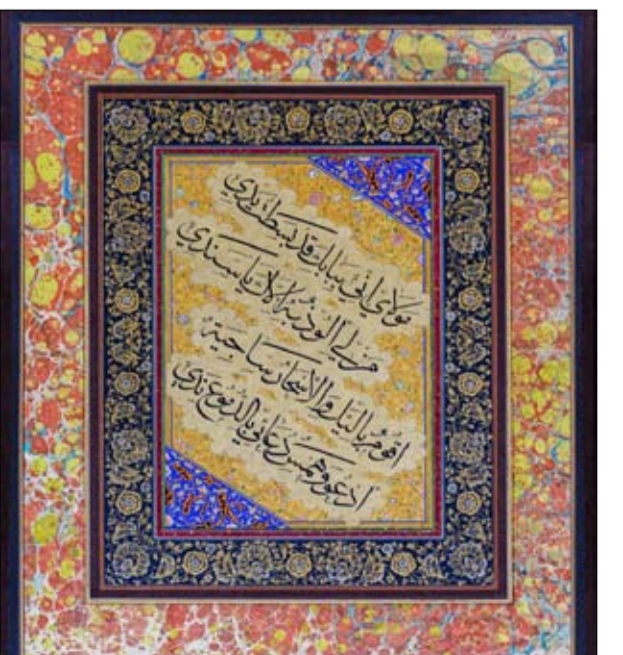 مولاي اني ببابك قد بسطت يدي
من لي الوذ به الاك يا سندي
اقوم بالليل والاسحار ساجية
ادعو وهمس دعائي بالدموع ندي